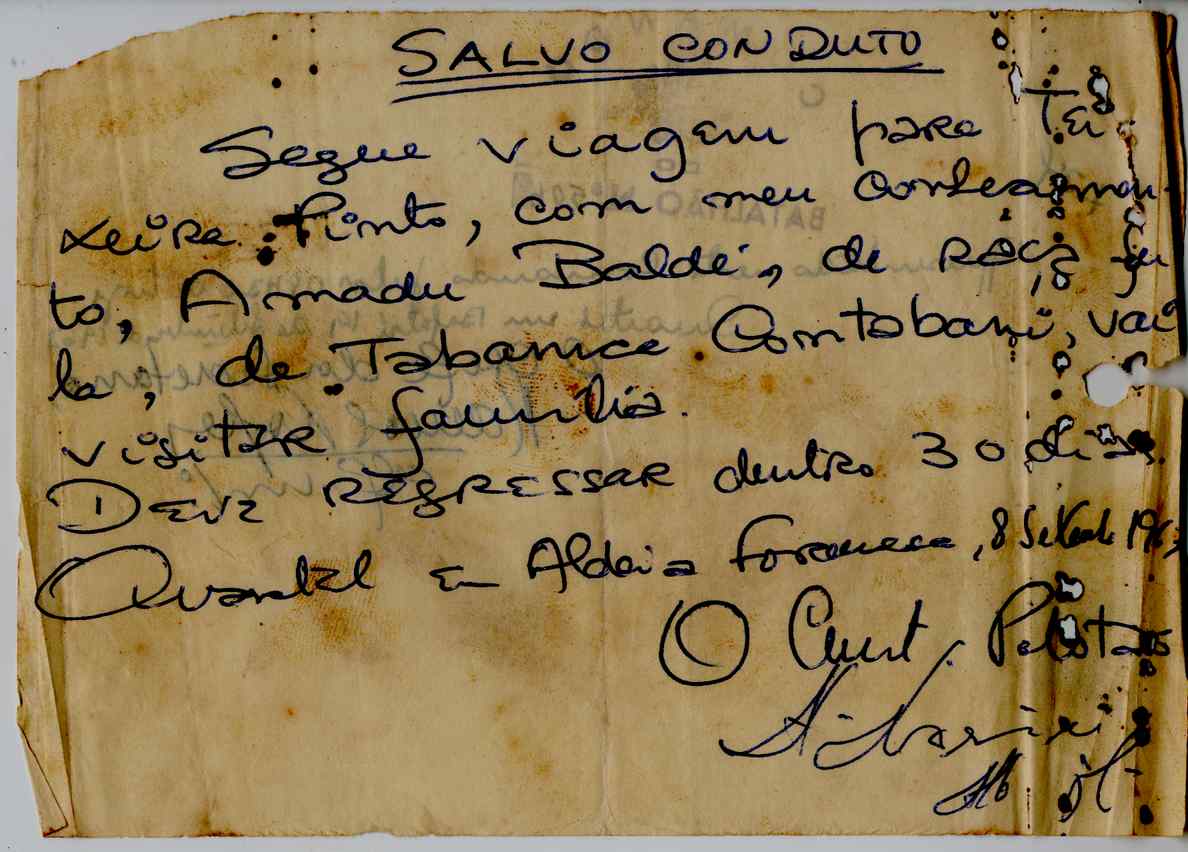 SALVO CONDUTO
Segue viagem para Tei
xeira Pinto, com meu conhecimen
to, Amadu Baldé, de raça fu
la, de Tabanca Contabani, vai
visitar família.
Deve regressar dentro 30 dias
Quartel em Aldeia Formosa, 8 Setembro 196
O Cmdt. Pelotão
BATALHÃO Nº